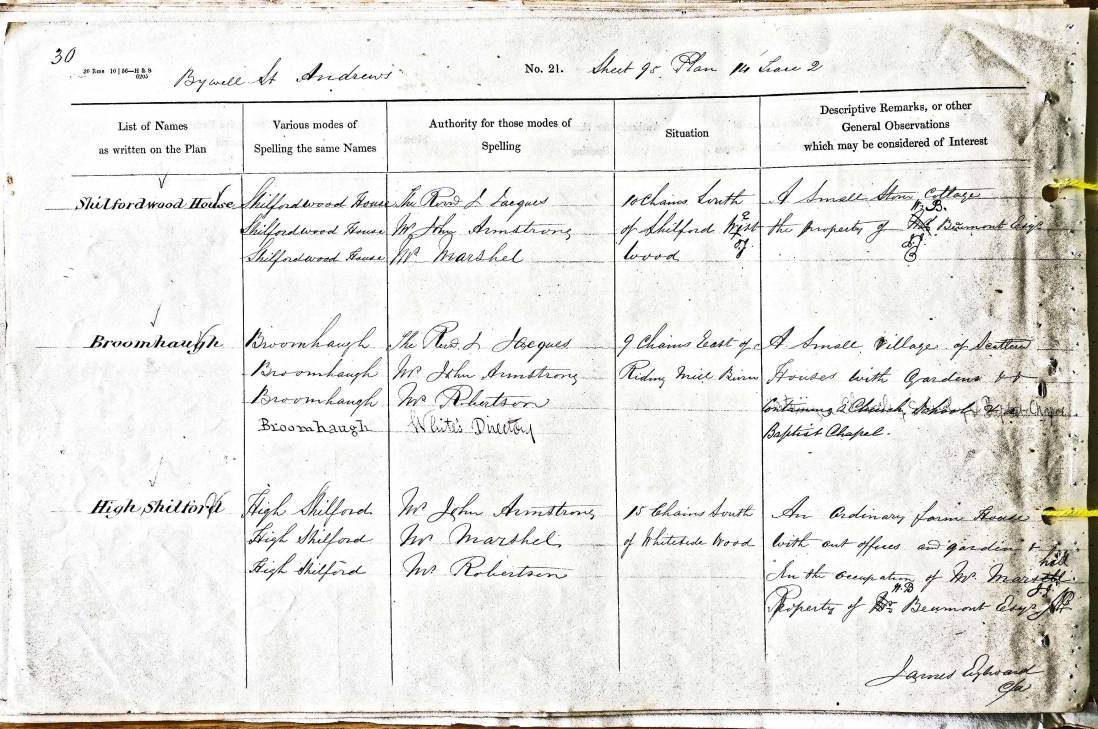 30
20 Rms 10 | 56—H & S
6205
Bywell St Andrews
No. 21.
Sheet 95 Plan 14 Trace 2
List of Names
as written on the Plan
Various modes of
Spelling the same Names
Authority for those modes of
Spelling
Situation
Descriptive Remarks, or other
General Observations
which may be considered of Interest
Shilfordwood House
Shilfordwood House
Shilfordwood House
Shilfordwood House
The Revd J Jacques
Mr John Armstrong
Mr Marshel
10 Chains South
of Shilford West
Wood
A Small Stone Cottage
the property of W. B. Beumont Esqr
Broomhaugh
Broomhaugh
Broomhaugh
Broomhaugh
Broomhaugh
The Revd J Jacques
Mr John Armstrong
Mr Robertson
White's Directory
9 Chains East of
Riding Mill Burn
A Small Village of Scattered
Houses with Gardens &c
Containing a Church, School &
Baptist Chapel.
High Shilford
High Shilford
High Shilford
High Shilford
Mr John Armstrong
Mr Marshel
Mr Robertson
15 Chains South
of Whiteside Wood
An Ordinary farm House
with out offices and garden &
In the occupation of Mr
Property of W.B Beumont Esqr
James
c/a